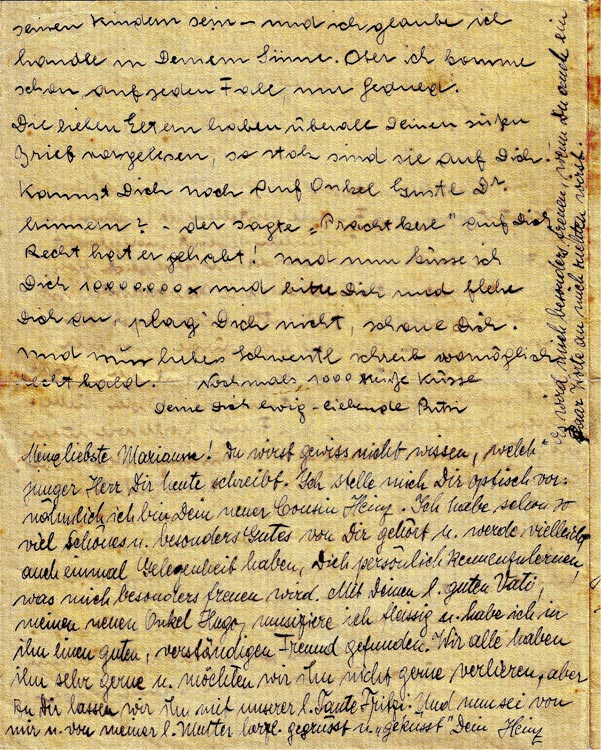 seinen Kindern sein – und ich glaube ich
handle in Deinem Sinne. Aber ich komme
schon auf jeden Fall, nur Geduld.
Die lieben Eltern haben überall Deinen süßen
Brief vorgelesen, so stolz sind sie auf Dich.
Kannst Dich noch auf Onkel Gustl Dr.
erinnern? – der sagte „Prachtkerl" auf Dich
Recht hat er gehabt! Und nun küsse ich
Dich 10000.000 x und bitte Dich und flehe
Dich an, plag' Dich nicht, schone Dich.
Und nun liebes Schwestl schreib womöglich
recht bald. Nochmals 1000 süße Küsse
Deine Dich ewig-liebende Putzi
Es wird mich besonders freuen, wenn Du auch ein
paar Worte an mich richten wirst.
Meine liebste Marianne! Du wirst gewiss nicht wissen, welch"
junger Herr Dir heute schreibt. Ich stelle mich Dir optisch vor.
nähmlich ich bin Dein neuer Cousin Heinz. Ich habe schon so
viel Schönes u. besonders Gutes von Dir gehört u. werde vielleicht
auch einmal Gelegenheit haben, Dich persönlich kennenzulernen,
was mich besonders freuen wird. Mit Deinem l. guten Vati,
meinen neuen Onkel Hugo, musiziere ich fleissig u. habe ich in
ihm einen guten, verständigen Freund gefunden. Wir alle haben
ihn sehr gerne u. möchten wir ihn nicht gerne verlieren, aber
zu Dir lassen wir ihn mit unserer l. Tante Fritzi. Und nun sei von
mir u. von meiner l. Mutter herzl. gegrüsst u. „geküsst" Dein Heinz